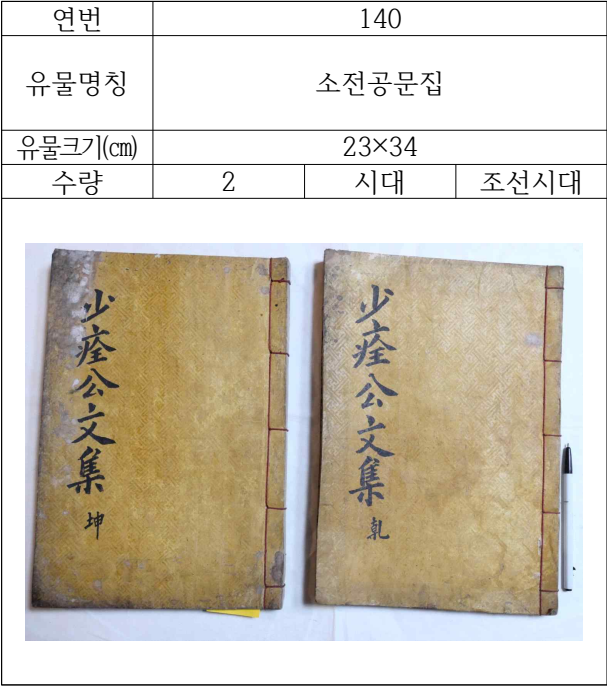 연번 140
유물명칭 소전공문집
유물크기(㎝) 23×34
수량 2 시대 조선시대
少痊公文集 坤
少痊公文集 乹